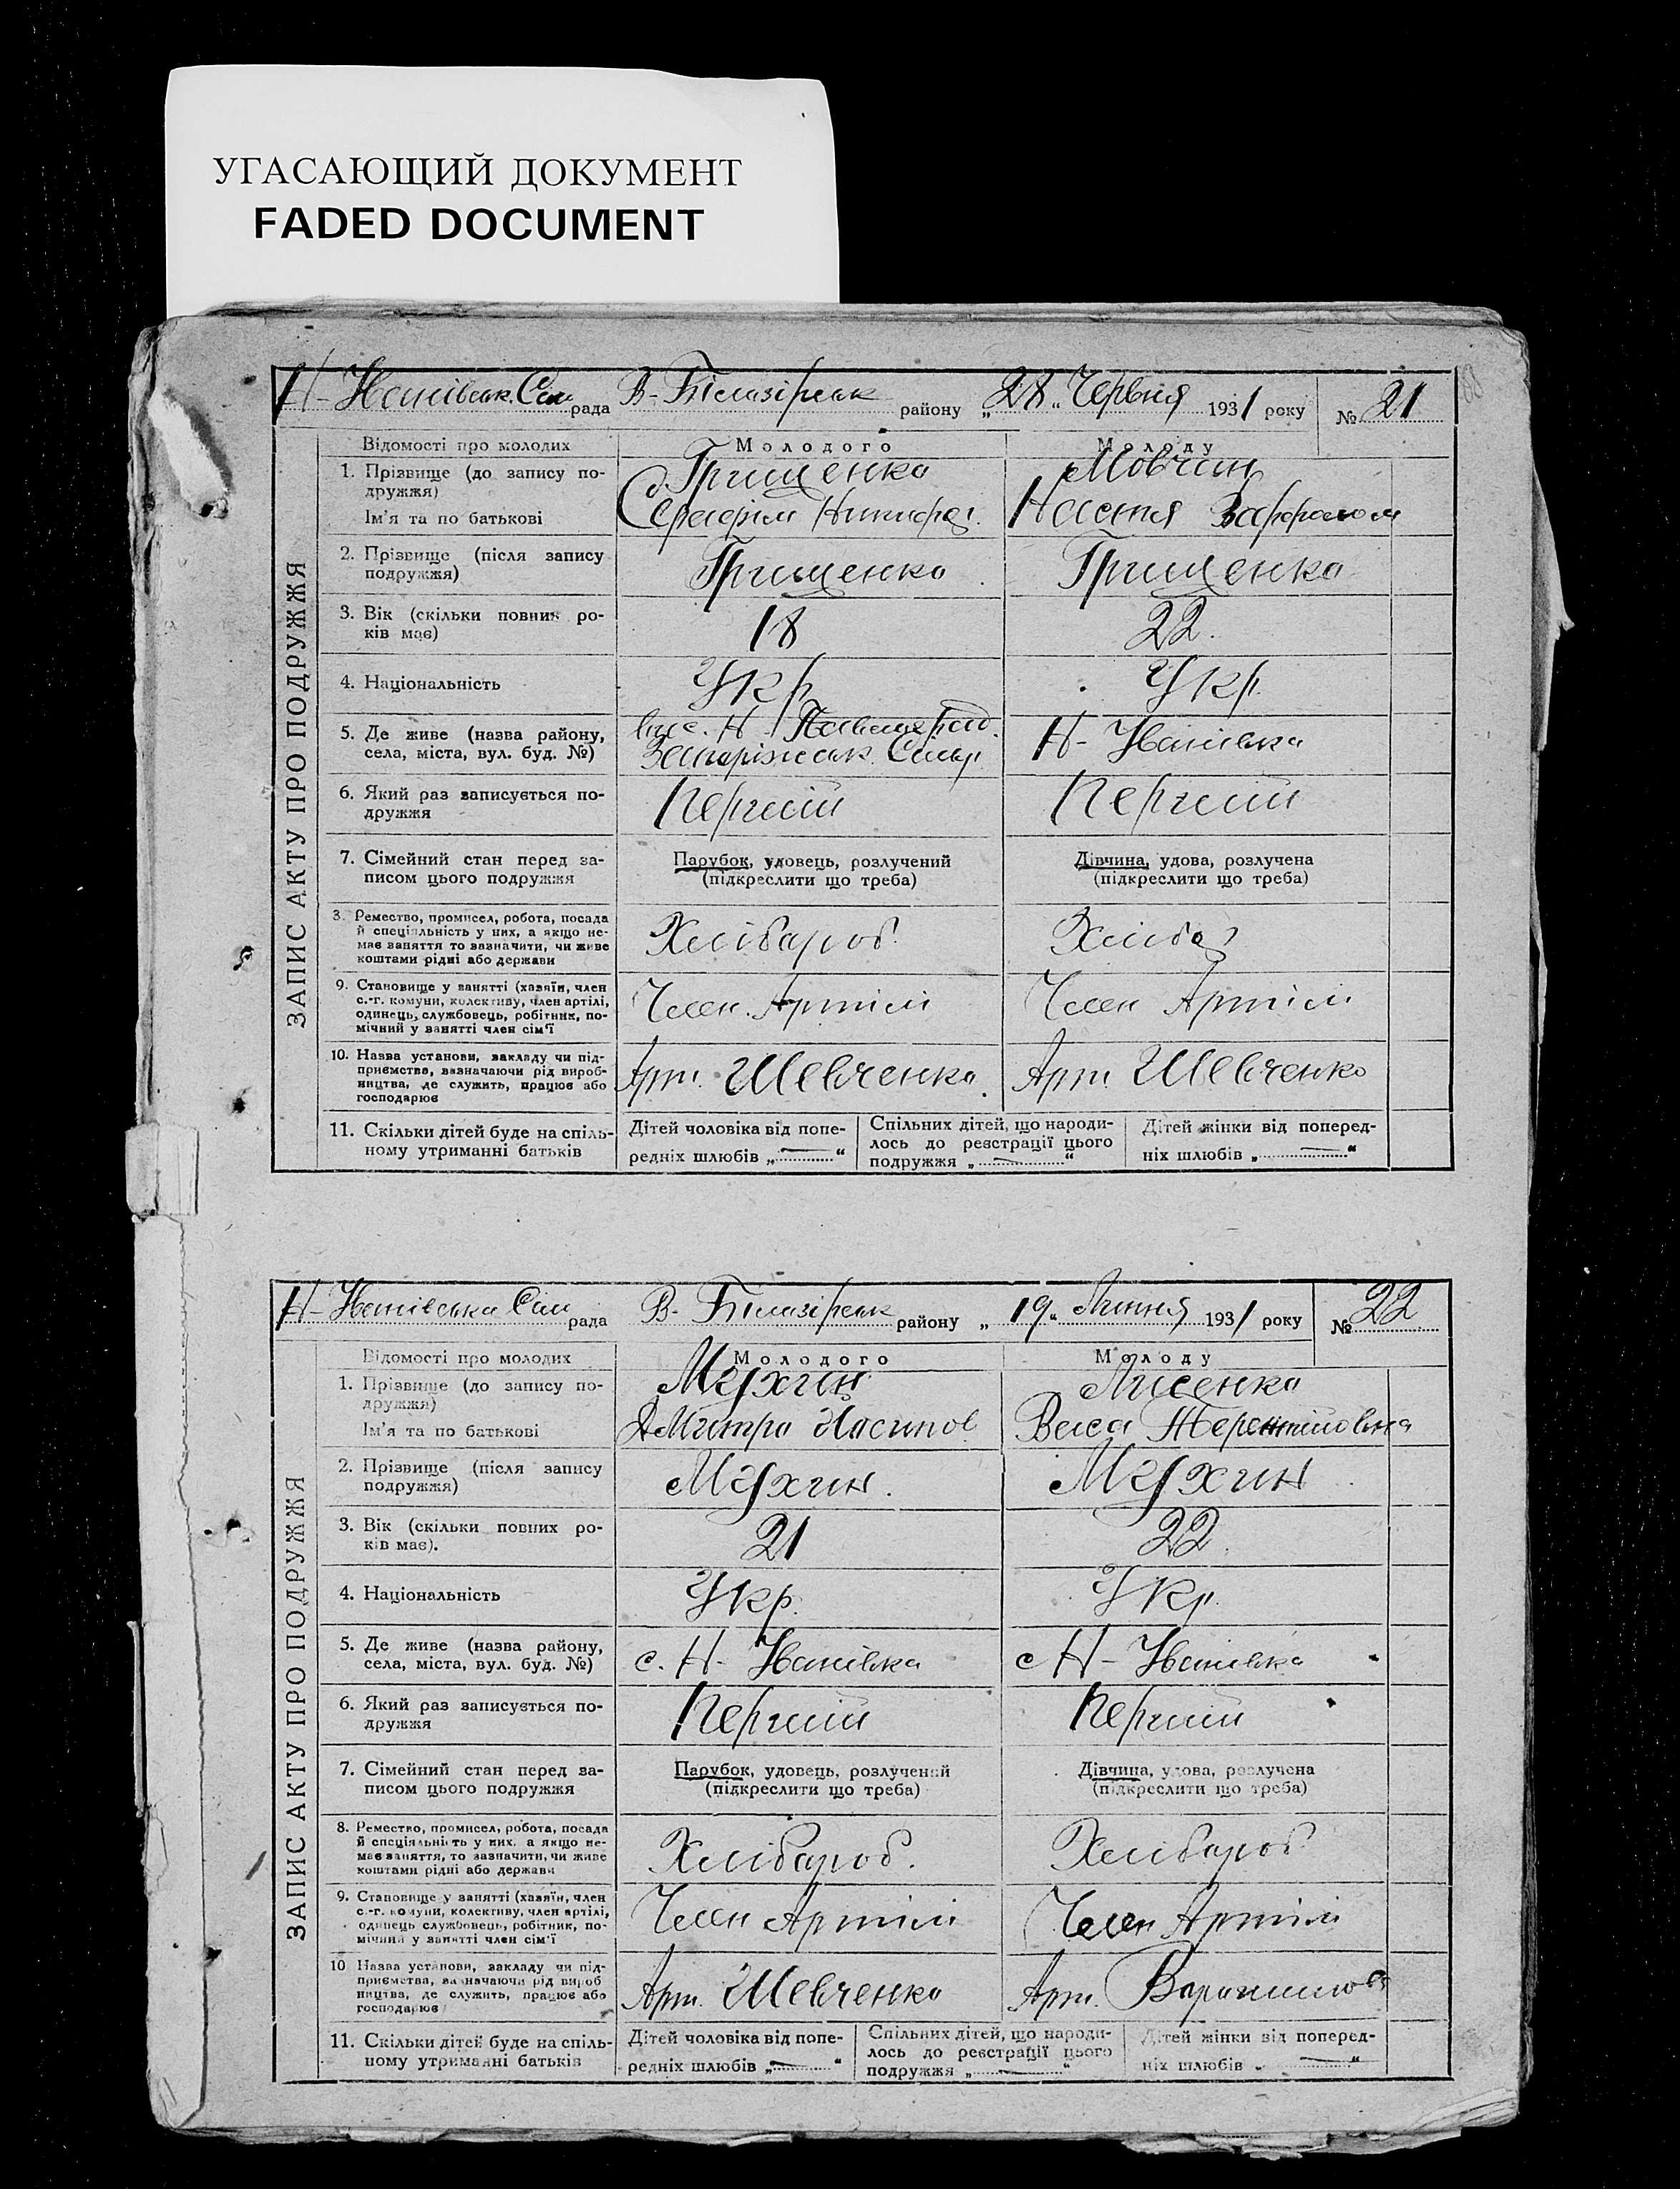 УГАСАЮЩИЙ ДОКУМЕНТ
FADED DOCUMENT
Н-Іванівськ. Сіл рада В-Білозірськ району „28" Червня 1931 року № 21
ЗАПИС АКТУ ПРО ПОДРУЖЖЯ
Відомості про молодих Молодого Молоду
1. Прізвище (до запису по- Грищенко Мовчан
дружжя)
Ім'я та по батькові Серафім Никифор. Настя
2. Прізвище (після запису Грищенко Грищенко
подружжя)
3. Вік (скільки повних ро- 18 22.
ків має)
4. Національність Укр Укр.
5. Де живе (назва району, Н- Н-Іванівка
села, міста, вул. буд. №) Запоріжськ.
6. Який раз записується по- Перший Перший
дружжя
7. Сімейний стан перед за- Парубок, удовець, розлучений Дівчина, удова, розлучена
писом цього подружжя (підкреслити що треба) (підкреслити що треба)
3. Ремество, промисел, робота, посада
й спеціяльність у них, а якщо не- Хлібароб. Хлібар
має заняття то зазначити, чи живе
коштами рідні або держави
9. Становище у занятті (хазяїн, член
с.-г. комуни, колективу, член артілі, Член. Артілі Член Артілі
одинець, службовець, робітник, по-
мічний у занятті член сім'ї
10. Назва установи, закладу чи під-
приємства, зазначаючи рід вироб- Арт. Шевченко. Арт. Шевченко
ництва, де служить, працює або
господарює
11. Скільки дітей буде на спіль- Дітей чоловіка від попе- Спільних дітей, що народи- Дітей жінки від поперед-
ному утриманні батьків редніх шлюбів „—" лось до реєстрації цього ніх шлюбів „—"
подружжя „—"
Н-Іванівська Сіл рада В-Білозірськ району „19" Липня 1931 року № 22
ЗАПИС АКТУ ПРО ПОДРУЖЖЯ
Відомості про молодих Молодого Молоду
1. Прізвище (до запису по- Мухин Лисенко
дружжя)
Ім'я та по батькові Дмитро Йосипов Васса Терентіївна
2. Прізвище (після запису Мухин. Мухин
подружжя)
3. Вік (скільки повних ро- 21 22.
ків має).
4. Національність Укр. Укр.
5. Де живе (назва району, с. Н-Іванівка с Н-Іванівка
села, міста, вул. буд. №)
6. Який раз записується по- Перший Перший
дружжя
7. Сімейний стан перед за- Парубок, удовець, розлучений Дівчина, удова, розлучена
писом цього подружжя (підкреслити що треба) (підкреслити що треба)
8. Ремество, промисел, робота, посада
й спеціяльність у них, а якщо не- Хлібароб. Хлібароб
має заняття, то зазначити, чи живе
коштами рідні або держави
9. Становище у занятті (хазяїн, член
с.-г. комуни, колективу, член артілі, Член Артілі Член Артілі
одинець службовець, робітник, по-
мічний у занятті член сім'ї
10 Назва установи, закладу чи під-
приємства, зазначаючи рід вироб Арт. Шевченко Арт. Ворошилов
ництва, де служить, працює або
господарює
11. Скільки дітей буде на спіль- Дітей чоловіка від попе- Спільних дітей, що народи- Дітей жінки від поперед-
ному утриманні батьків редніх шлюбів „—" лось до реєстрації цього ніх шлюбів „—"
подружжя „—"